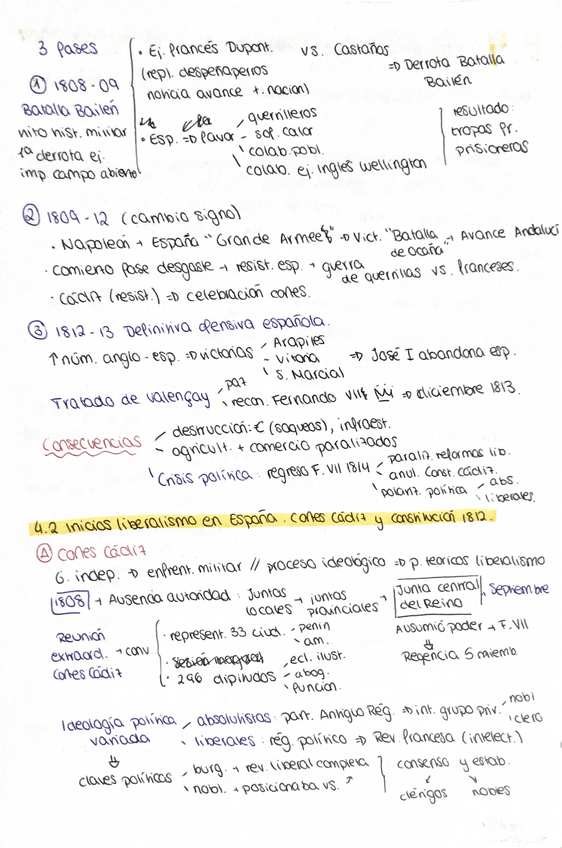 3 Fases
· Ej. Francés Dupont. vs. Castaños
(repl. despeñaperros => Derrota Batalla
noticia avance t. nacion) Bailén
① 1808-09
Batalla Bailén
hito hist. militar
1ª derrota ej.
imp campo abierto
· Esp. => favor - guerrilleros
- sof. calor
\ colab. pobl.
\ colab. ej. inglés wellington
resultado:
tropas fr.
prisioneras
② 1809-12 (cambio signo)
· Napoleón → España "Grande Armeé" => Vict. "Batalla de Ocaña" → Avance Andalucí
· Comienzo fase desgaste → resist. esp. + guerra
de guerrillas vs. franceses.
· Cádiz (resist.) => celebración cortes.
③ 1812-13 Definitiva ofensiva española.
↑ núm. anglo-esp. => victorias - Arapiles
- Vitoria => José I abandona esp.
\ S. Marcial
Tratado de Valençay - paz
\ recon. Fernando VII => diciembre 1813.
Consecuencias - destrucción: € (saqueos), infraest.
- agricult. + comercio paralizados
\ Crisis política: regreso F. VII 1814 - paraliz. reformas lib.
- anul. Const. Cádiz.
\ polariz. política - abs.
\ liberales.
4.2 Inicios liberalismo en España. Cortes Cádiz y constitución 1812.
Ⓐ Cortes Cádiz
G. indep. => enfrent. militar // proceso ideológico => p. teóricos liberalismo
1808 → Ausencia autoridad: Juntas locales → juntas provinciales → Junta central del Reino, Septiembre
Asumió poder → F. VII
⇓
Regencia 5 miemb.
Reunión
extraord. → conv
Cortes Cádiz
· represent. 33 ciud. - penin
\ am.
· 296 diputados - ecl. ilust.
- abog.
\ funcion.
Ideología política - absolutistas: part. Antiguo Rég. => int. grupo priv. - nobl
\ clero
variada \ liberales: rég. político => Rev. francesa (intelect.)
⇓
claves políticos - burg. → rev. liberal completa
\ nobl. → posicionaba vs. ↗
consenso y estab.
clérigos nobles